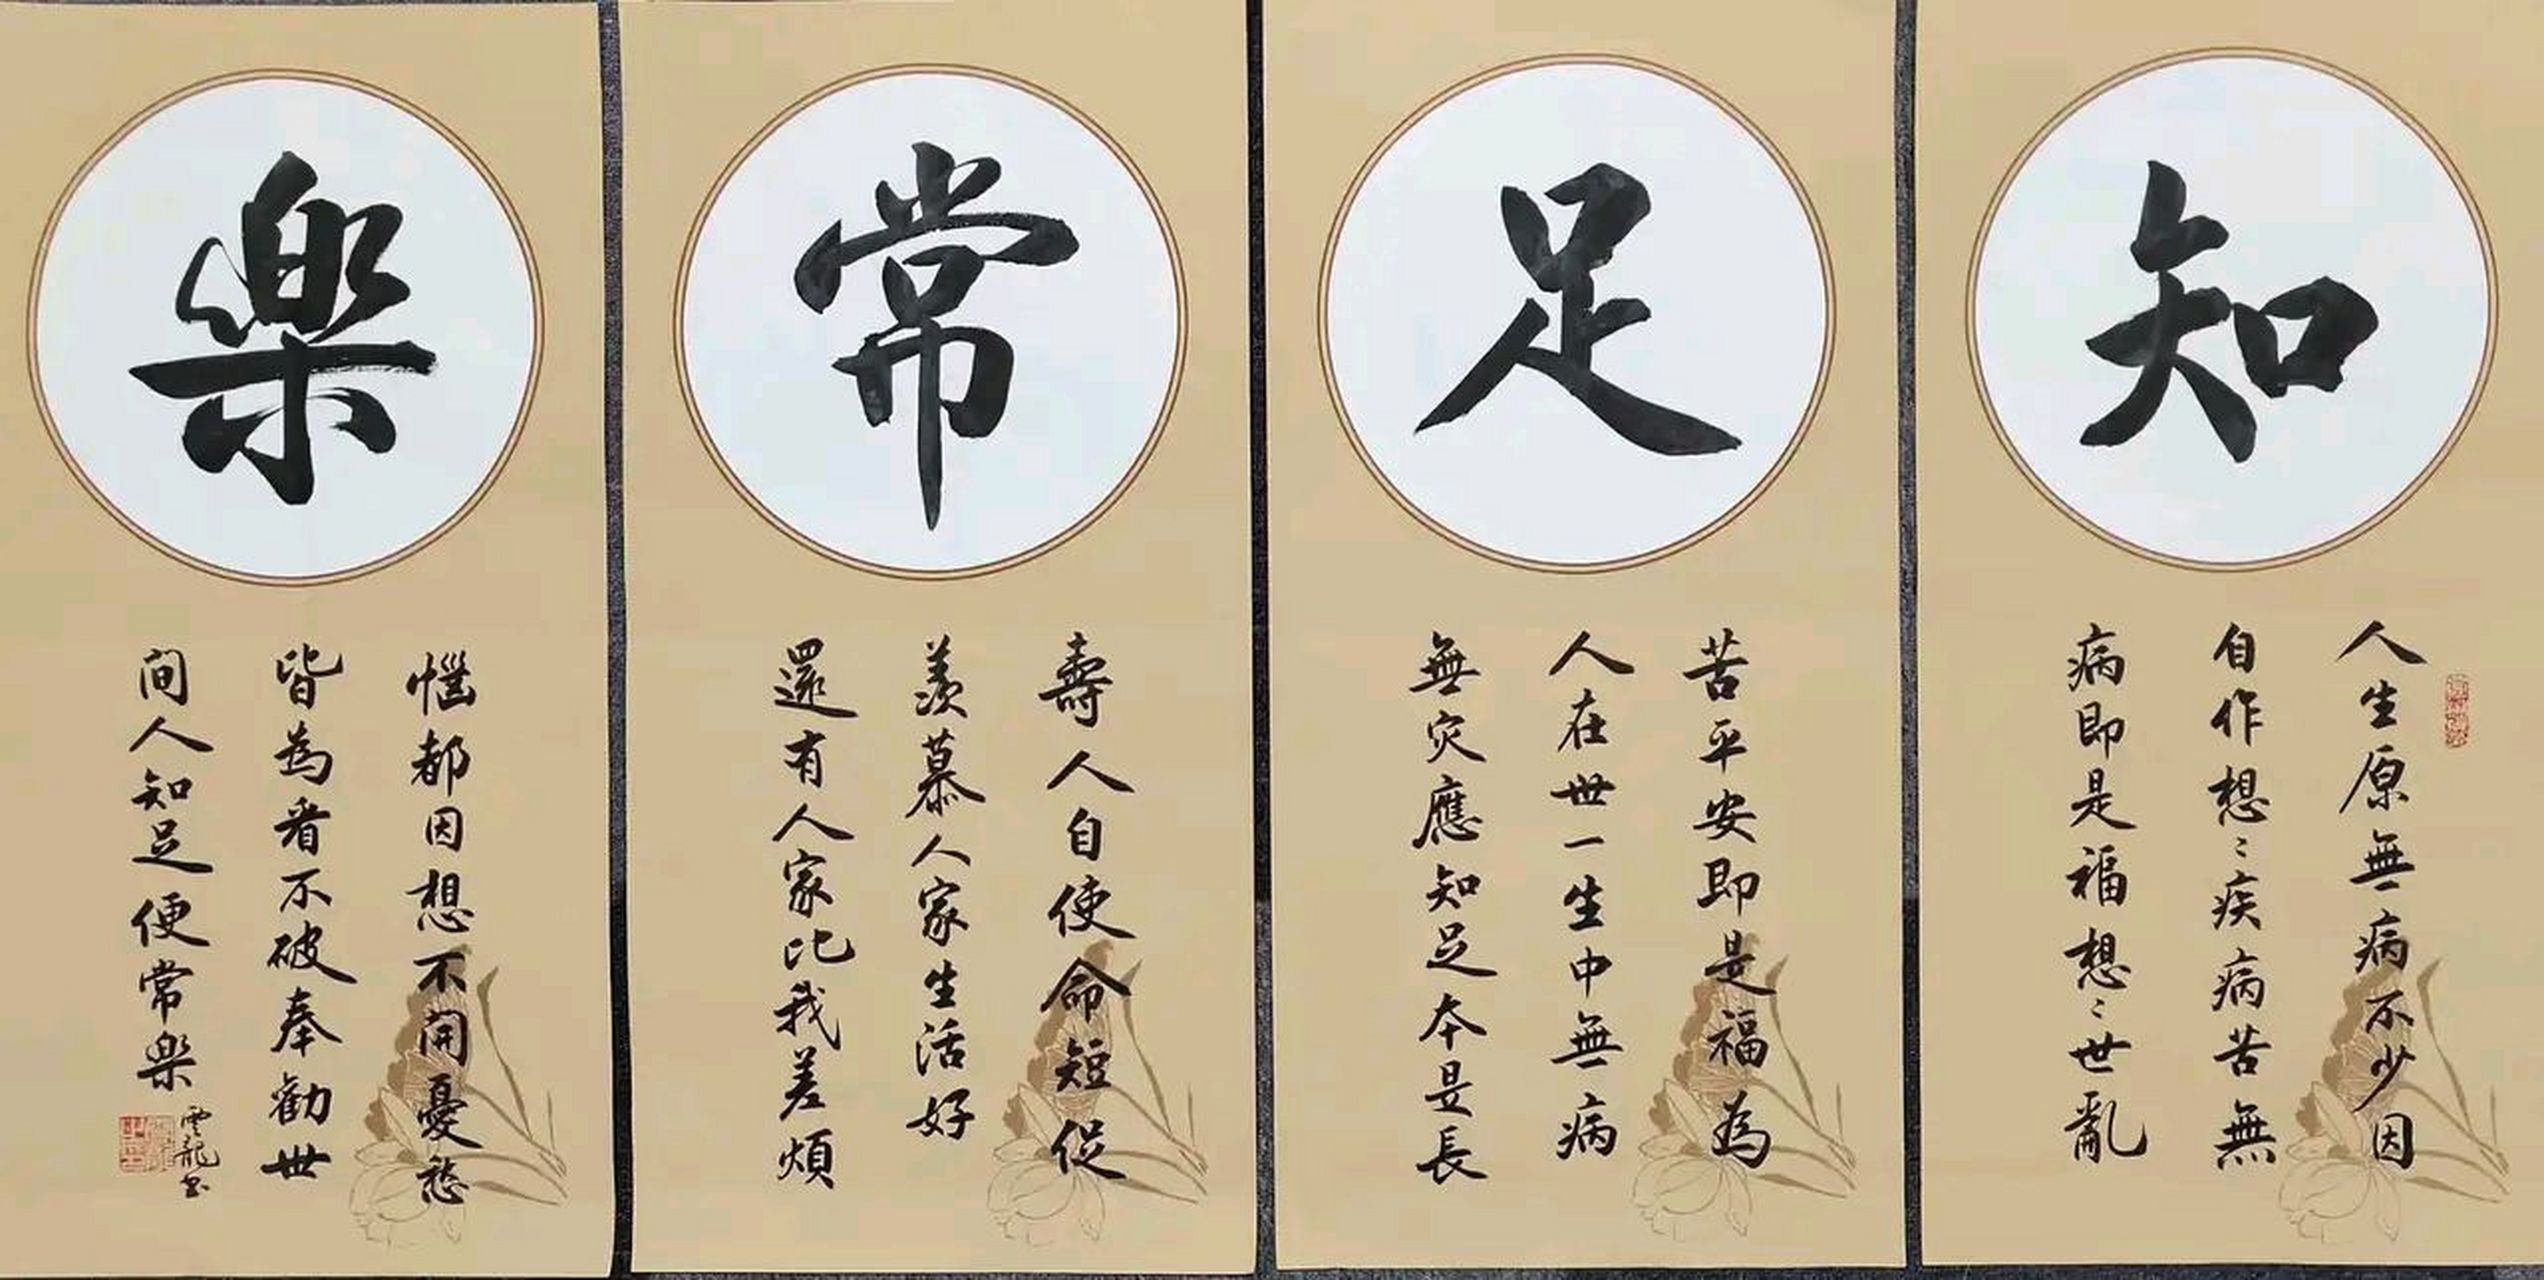 知
人生原無病不少因
自作想〻疾病苦無
病即是福想〻世亂
足
苦平安即是福為
人在世一生中無病
無灾應知足本是長
常
壽人自使命短促
羨慕人家生活好
還有人家比我差煩
樂
惱都因想不開憂愁
皆為看不破奉勸世
间人知足便常樂
雲龍书